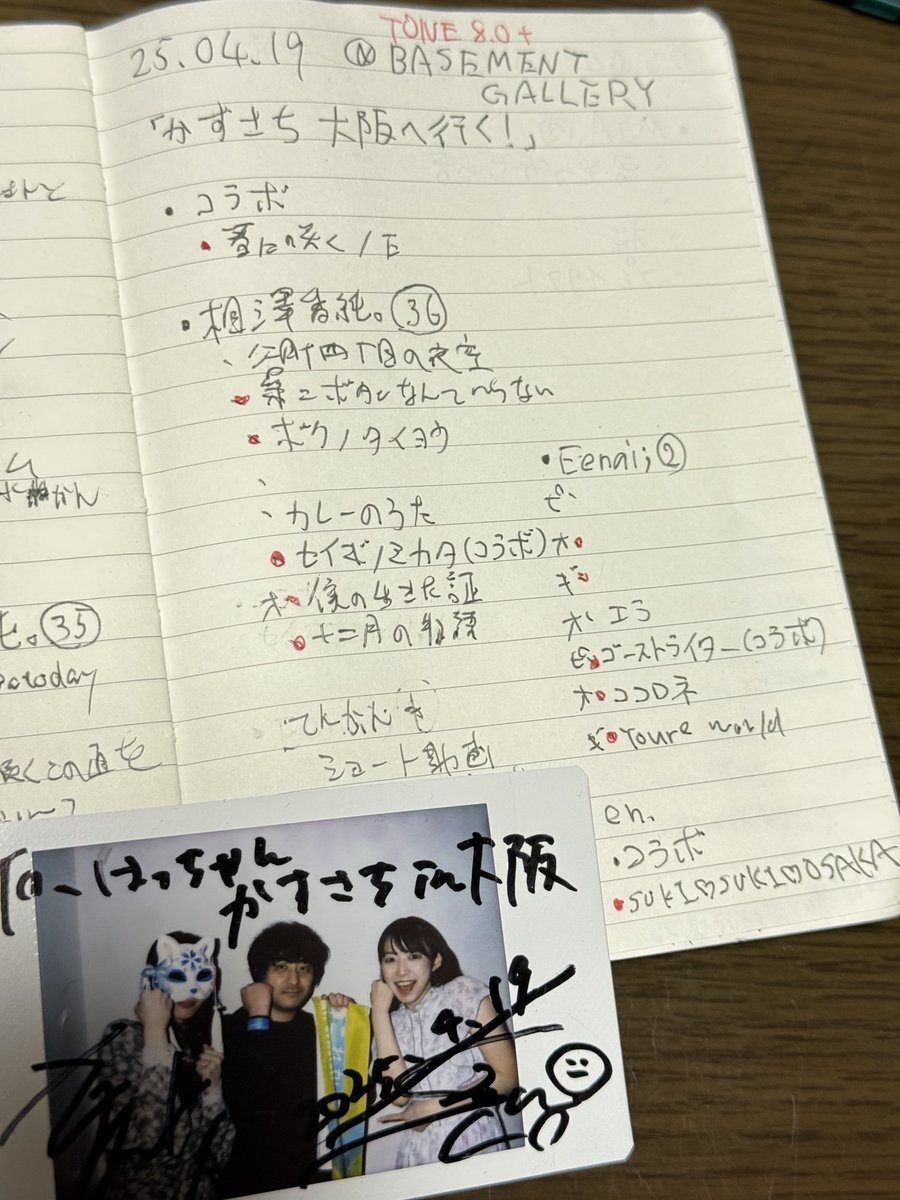 TONE 8.0+
25.04.19 @BASEMENT
GALLERY
「かすさち 大阪へ行く!」
・コラボ
・春に咲く/E
・相澤香純。㊱
、三月十四丁目の夜空
・第二ボタンなんていらない
・ボクノタイヨウ
、
、カレーのうた
・セイギノミカタ(コラボ)
オ・僕の生きた証
・十二月の物語
てんかんき
ショート動画
・Eenai;②
ピ、
オ・
ギ・
オ エラ
ピ・ゴーストライター(コラボ)
オ・ココロネ
ギ・Youre world
en.
・コラボ
・SUKI♡SUKI♡OSAKA
かん
。㉟
today
この道を
はっちゃん
かすさち in 大阪
2025 4.19